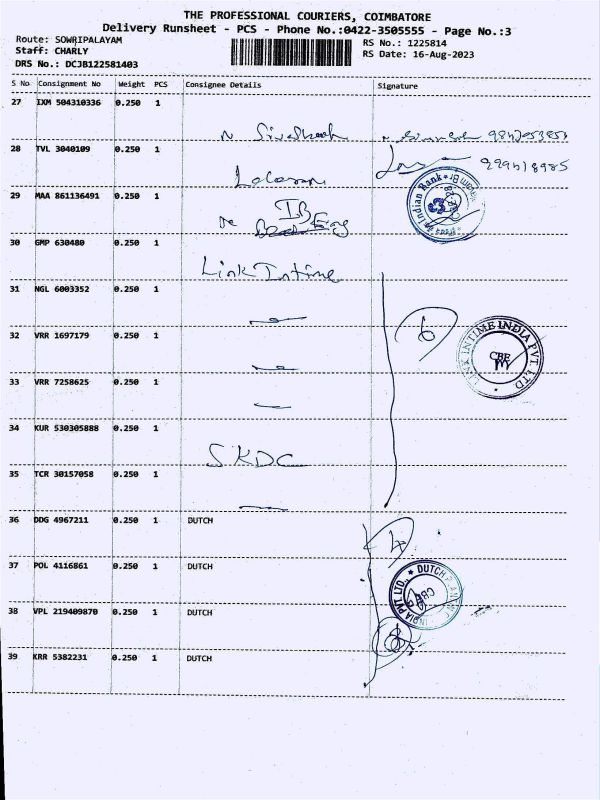 THE PROFESSIONAL COURIERS, COIMBATORE
Delivery Runsheet - PCS - Phone No.:0422-3505555 - Page No.:3
Route: SOWRIPALAYAM
RS No.: 1225814
Staff: CHARLY
RS Date: 16-Aug-2023
DRS No.: DCJB122581403
S No Consignment No Weight PCS Consignee Details Signature
27 IXM 504310336 0.250 1
28 TVL 3040109 0.250 1
29 MAA 861136491 0.250 1
Indian Bank
IB
30 GMP 630480 0.250 1
Link Intime
31 NGL 6003352 0.250 1
6
LINK INTIME INDIA PVT. LTD
CBE
32 VRR 1697179 0.250 1
33 VRR 7258625 0.250 1
34 KUR 530305888 0.250 1
SKDC
35 TCR 30157058 0.250 1
36 DDG 4967211 0.250 1 DUTCH
37 POL 4116861 0.250 1 DUTCH
DUTCH
INDIA PVT LTD.,
CBE
38 VPL 219409870 0.250 1 DUTCH
39 KRR 5382231 0.250 1 DUTCH